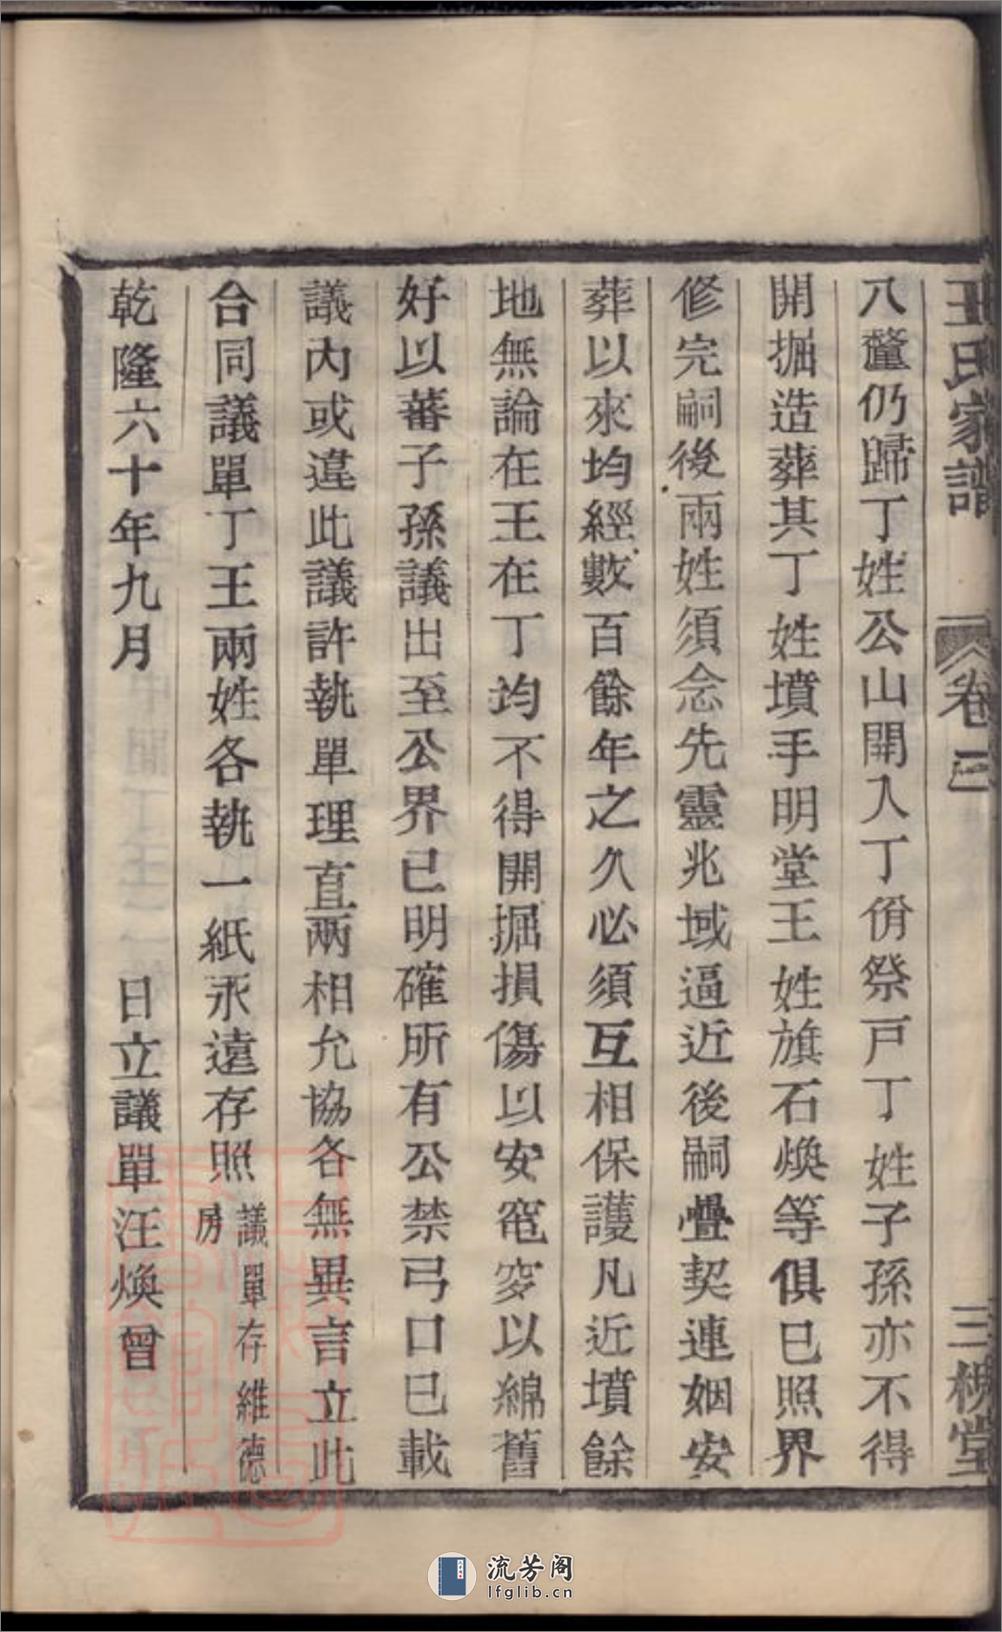 王氏家譜 卷三 三槐堂
八釐仍歸丁姓公山開入丁份祭戸丁姓子孫亦不得
開掘造葬其丁姓墳手明堂王姓旗石煥等俱已照界
修完嗣後兩姓須念先靈兆域逼近後嗣疊契連姻安
葬以來均經數百餘年之久必須互相保護凡近墳餘
地無論在王在丁均不得開掘損傷以安窀穸以綿舊
好以蕃子孫議出至公界已明確所有公禁弓口已載
議內或違此議許執單理直兩相允協各無異言立此
合同議單丁王兩姓各執一紙永遠存照議單存維德
房
乾隆六十年九月 日立議單汪煥曾
流芳阁
lfglib.cn